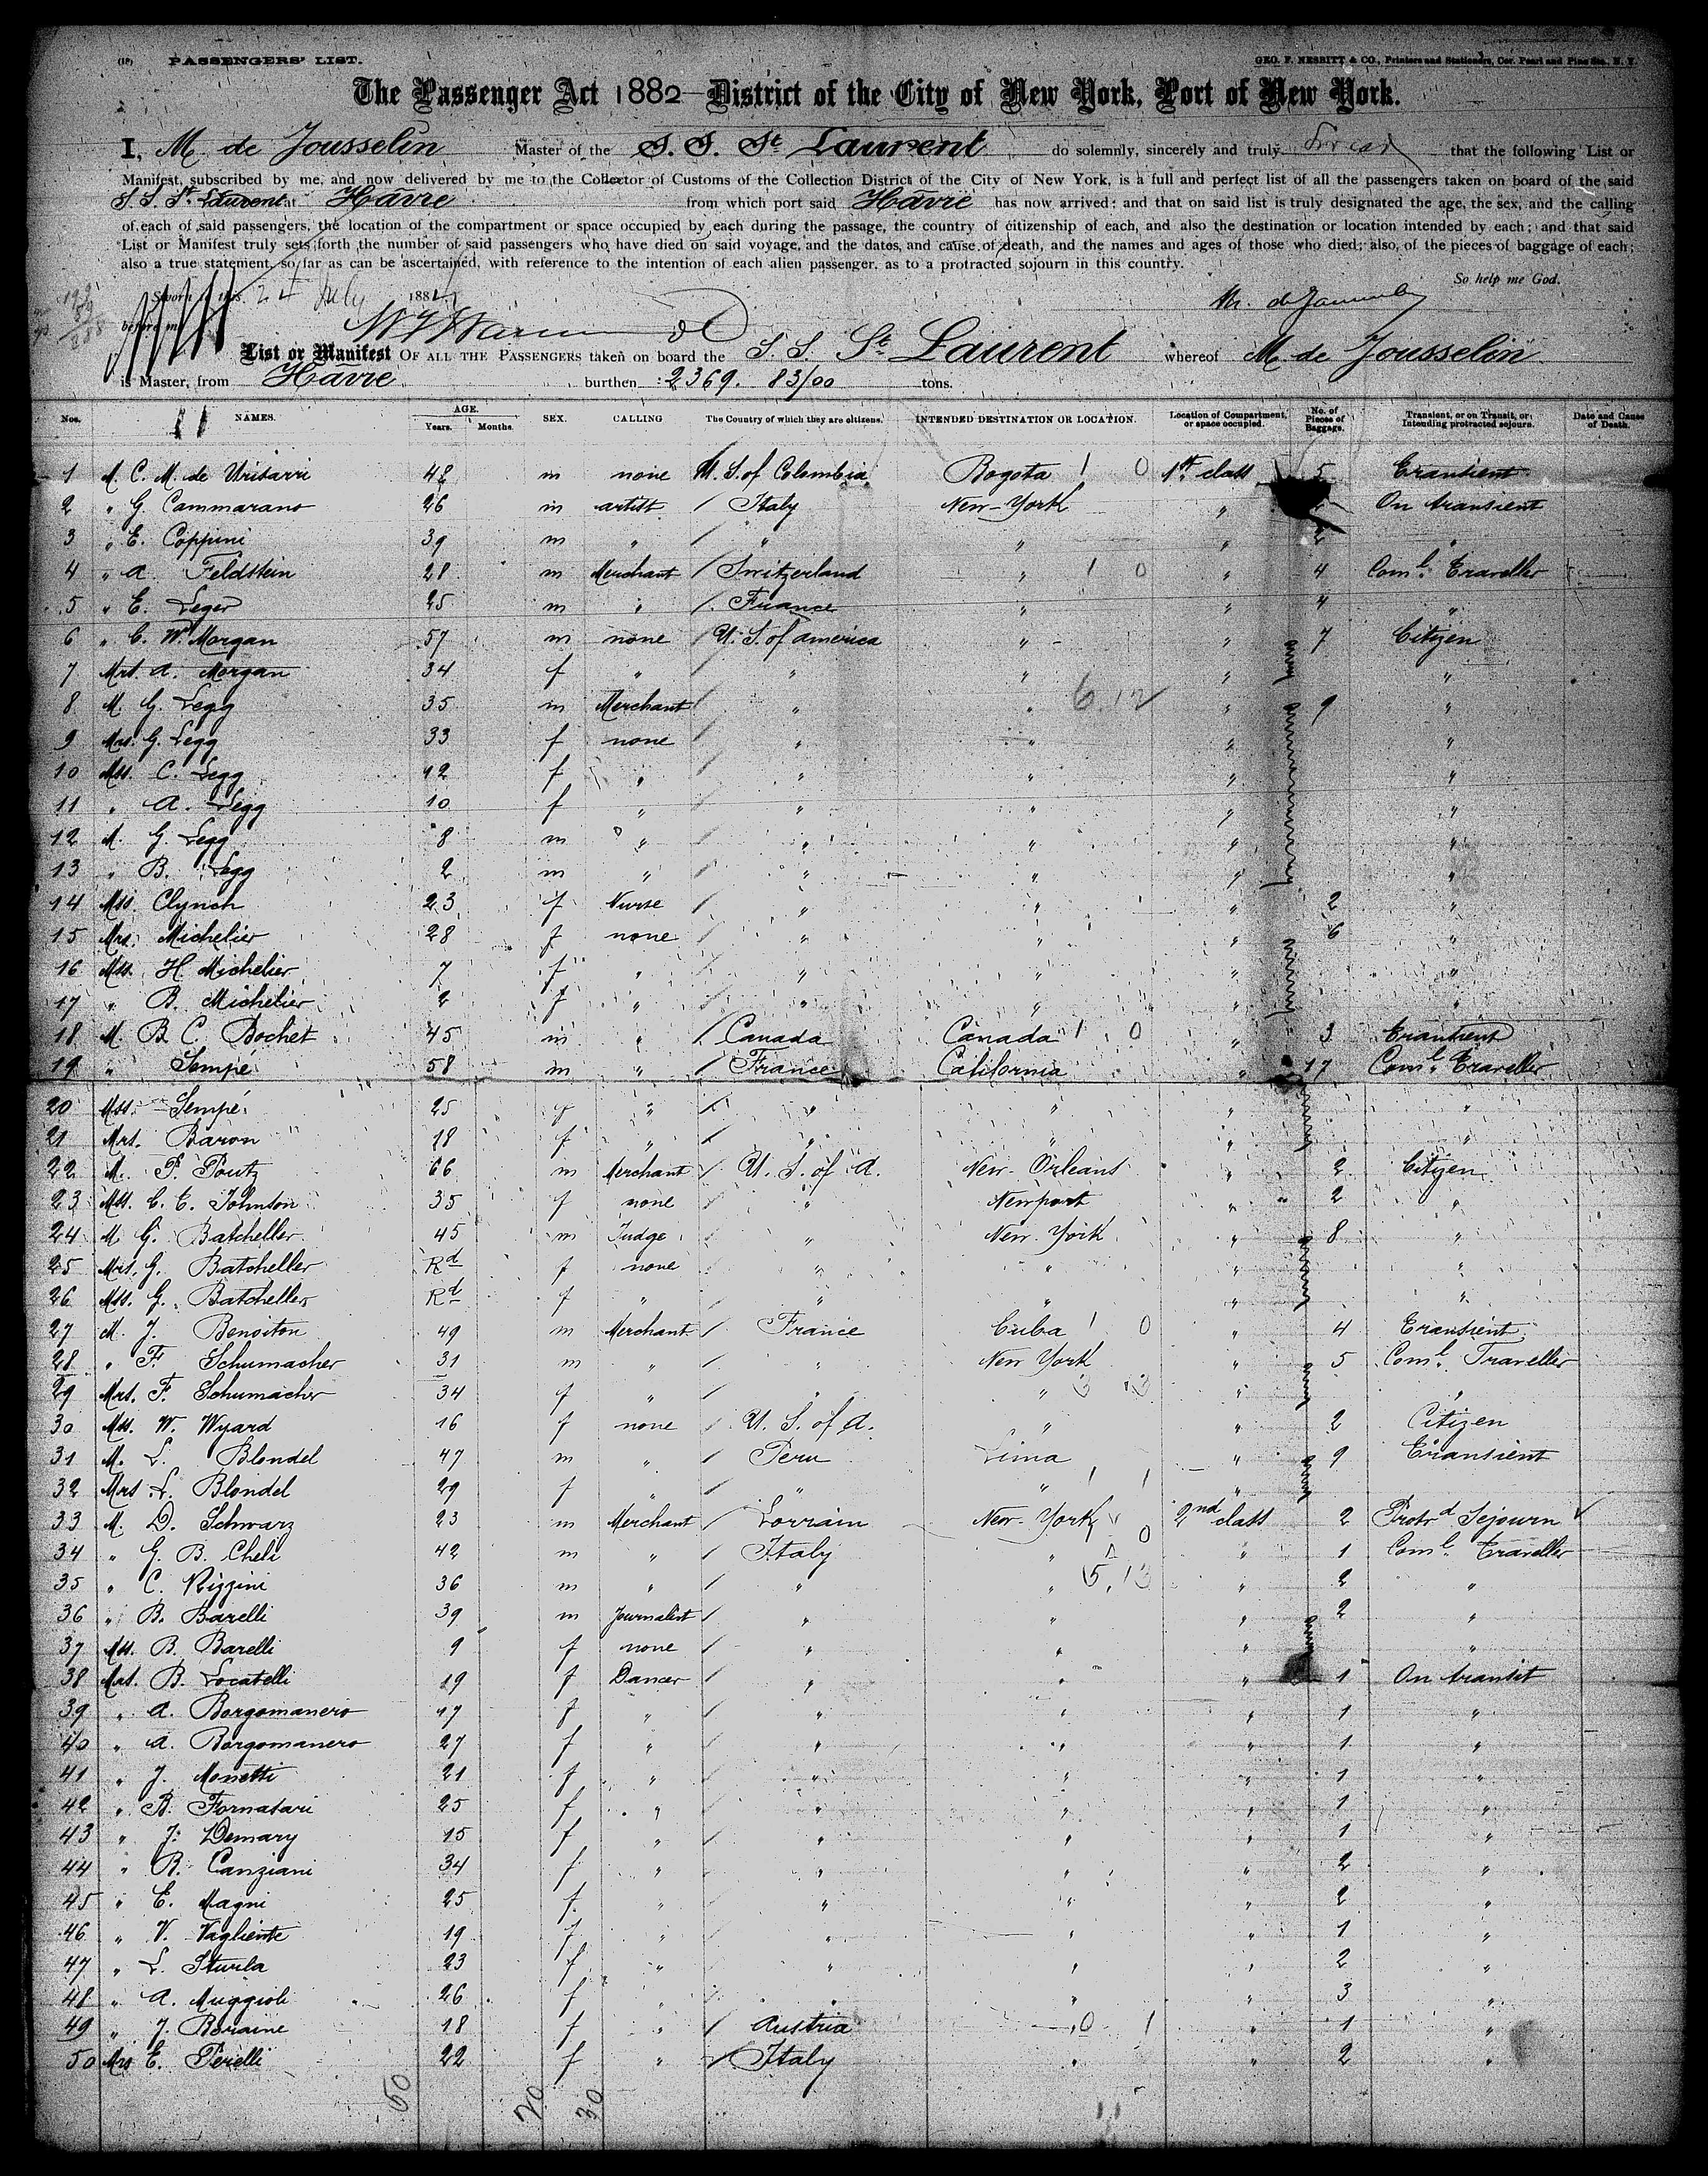 (18) PASSENGERS' LIST. GEO. F. NESBITT & CO., Printers and Stationers, Cor. Pearl and Pine Sts., N. Y.
The Passenger Act 1882 District of the City of New York, Port of New York.
I, M de Jousselin Master of the S. S. St Laurent do solemnly, sincerely and truly Swear that the following List or
Manifest, subscribed by me, and now delivered by me to the Collector of Customs of the Collection District of the City of New York, is a full and perfect list of all the passengers taken on board of the said
S. S. St Laurent at Hâvre from which port said Hâvre has now arrived: and that on said list is truly designated the age, the sex, and the calling
of each of said passengers, the location of the compartment or space occupied by each during the passage, the country of citizenship of each, and also the destination or location intended by each; and that said
List or Manifest truly sets forth the number of said passengers who have died on said voyage, and the dates, and cause of death, and the names and ages of those who died; also, of the pieces of baggage of each;
also a true statement, so far as can be ascertained, with reference to the intention of each alien passenger, as to a protracted sojourn in this country.
So help me God.
Sworn to this 24 July 1884
before me
List or Manifest OF ALL THE PASSENGERS taken on board the S. S. St Laurent whereof M de Jousselin
is Master, from Hâvre burthen 2369. 83/00 tons.
Nos. NAMES. AGE. Years. Months. SEX. CALLING The Country of which they are citizens. INTENDED DESTINATION OR LOCATION. Location of Compartment, or space occupied. No. of Pieces of Baggage. Transient, or on Transit, or Intending protracted sojourn. Date and Cause of Death.
1 M. C. M. de Urisarri 48 m none U. S. of Colombia Bogota 1 0 1st class 5 Transient
2 " G. Cammarano 26 m artist / Italy New-York " On transient
3 " E. Coppini 39 m " / " " " 2 "
4 " A. Feldstein 28 m Merchant / Switzerland " 1 0 " 4 Coml. Traveller
5 " E. Leger 25 m " / France " " 4 "
6 " C. W. Morgan 57 m none / U. S. of america " " 7 Citizen
7 Mrs. A. Morgan 34 f " / " " " "
8 M. G. Legg 35 m Merchant / " " 6.12 " 9 "
9 Mrs. G. Legg 33 f none / " " " "
10 Mss. C. Legg 12 f " / " " " "
11 " A. Legg 10 f " / " " " "
12 M. G. Legg 8 m " " " " "
13 " B. Legg 2 m " " " " "
14 Mss. Clynch 23 f Nurse / " " " 2 "
15 Mrs. Michelier 28 f none / " " " 6 "
16 Mss. H. Michelier 7 f " / " " " "
17 " B. Michelier 2 f " / " " " "
18 M. B. C. Bochet 45 m " / Canada Canada 1 0 " 3 Transient
19 " Sempé 58 m " / France California " 17 Coml. Traveller
20 Mss. Sempé 25 f " / " " " "
21 Mrs. Baron 18 f " / " " " "
22 M. P. Poutz 66 m Merchant / U. S. of A. New-Orleans " 2 Citizen
23 Mss. C. C. Johnson 35 f none " Newport " 2 "
24 M. G. Batcheller 45 m Judge " New-York " 8 "
25 Mrs. G. Batcheller Rd f none " " " "
26 Mss. G. Batcheller Rd f " " " " "
27 M. J. Benoiton 49 m Merchant / France Cuba 1 0 " 4 Transient
28 " F. Schumacher 31 m " / " New York " 5 Coml. Traveller
29 Mrs. F. Schumacher 34 f " / " " " "
30 Mss. W. Wyard 16 f none / U. S. of A. " " 2 Citizen
31 M. L. Blondel 47 m " / Peru Lima " 9 Transient
32 Mrs. L. Blondel 29 f " / " " 1 1 "
33 M. D. Schwarz 23 m Merchant / Lorrain New-York 1 0 2nd class 2 Protrd Sejourn
34 " G. B. Cheli 42 m " / Italy " " 1 Coml. Traveller
35 " C. Rizzini 36 m " / " " 5.13 " 2 "
36 " B. Barelli 39 m Journalist / " " " 2 "
37 Mss. B. Barelli 9 f none / " " " "
38 Mrs. B. Locatelli 19 f Dancer / " " " 1 On transit
39 " A. Borgomanero 17 f " / " " " 1 "
40 " A. Borgomanero 27 f " / " " " 1 "
41 " J. Monetti 21 f " / " " " 1 "
42 " B. Fornasari 25 f " / " " " 1 "
43 " J. Demary 15 f " / " " " 1 "
44 " R. Canziani 34 f " / " " " 2 "
45 " E. Magni 25 f " " " " 2 "
46 " V. Vagliente 19 f " / " " " 1 "
47 " L. Sturla 23 f " / " " " 2 "
48 " A. Muggioli 26 f " / " " " 3 "
49 " J. Braine 18 f " / Austria " 0 1 " 1 "
50 Mrs E. Perelli 22 f " / Italy " " 2 "
50 20 30